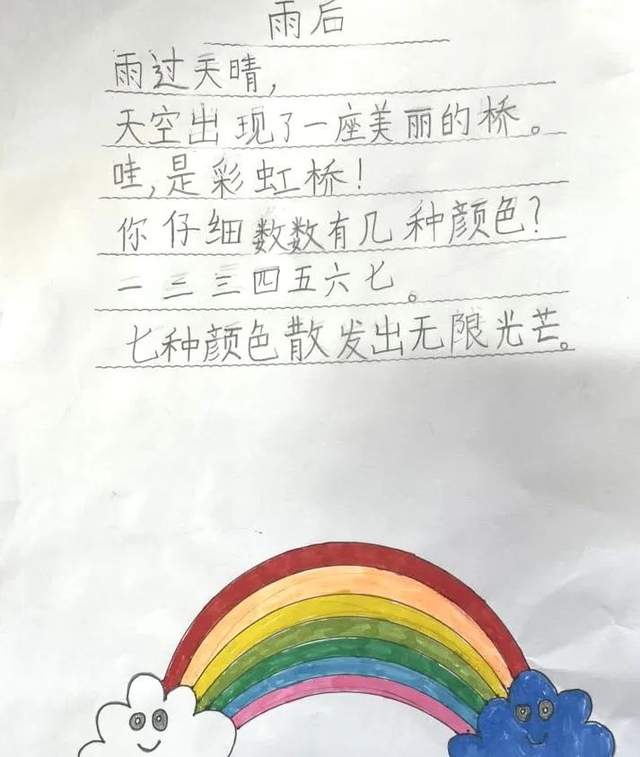 雨后
雨过天晴,
天空出现了一座美丽的桥。
哇,是彩虹桥!
你仔细数数有几种颜色?
一二三四五六七。
七种颜色散发出无限光芒。